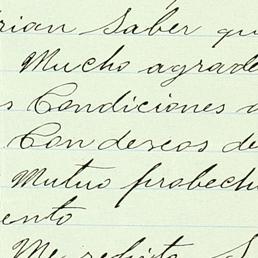 rian saber qu
Mucho agrade
s Condiciones d
Con deseos de
Mutuo probech
ento
Me repito S